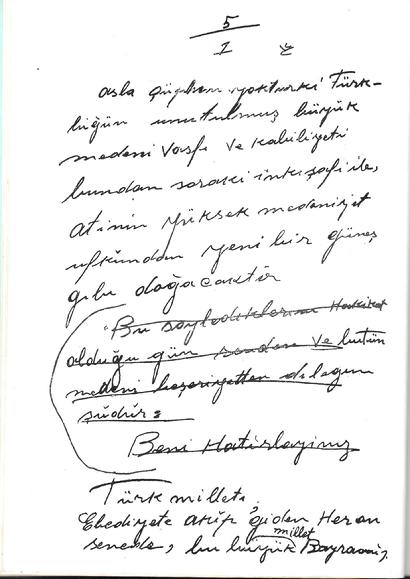 5
I
asla şüphem yoktur ki Türk-
lüğün unutulmuş büyük
medeni vasfı ve kabiliyeti
bundan sonraki inkişafı ile,
atinin yüksek medeniyet
ufkundan yeni bir güneş
gibi doğacaktır
Bu söylediklerim Hakikat
olduğu gün senden ve bütün
medeni beşeriyetten dileğim
şudur:
Beni Hatırlayınız
Türk milleti
Ebediyete akıp giden Her on
senede, bu büyük millet Bayramını,